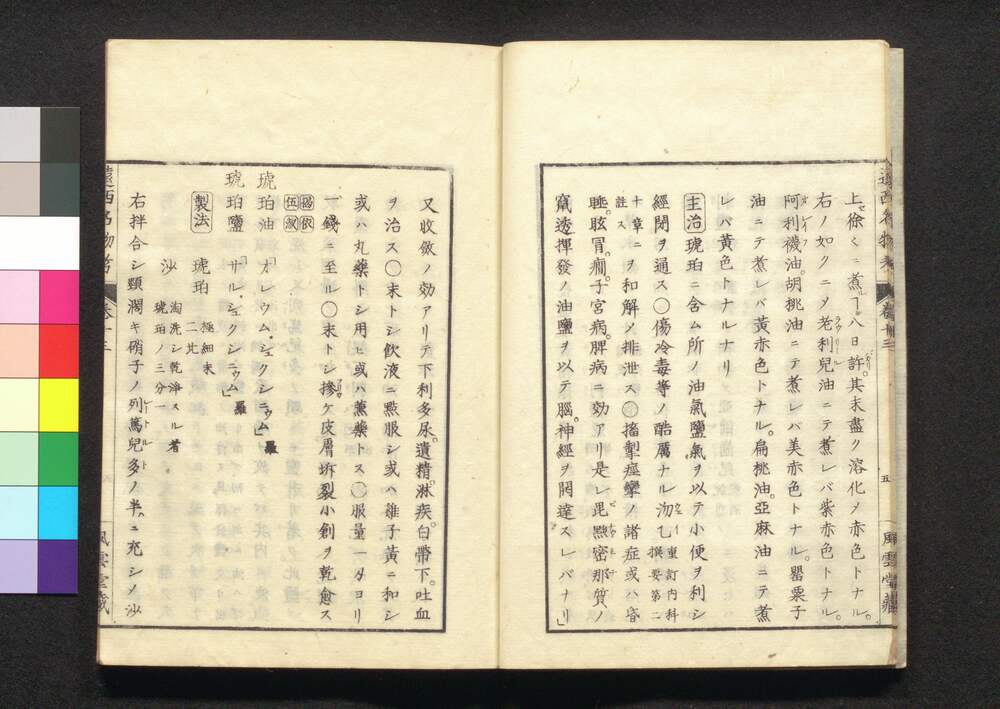 上徐々ニ煮ル丁八日許其末盡ク溶化ノ赤色トナル。
右ノ如クニノ老利兒油ニテ煮レバ紫赤色トナル。
阿利襪油。胡桃油ニテ煮レバ美赤色トナル。罌粟子
油ニテ煮レバ黄赤色トナル。扁桃油。亞麻油ニテ煮
レバ黄色トナルナリ
主治 琥珀ニ含ム所ノ油氣鹽氣ヲ以テ小便ヲ利シ
經閉ヲ通ス○傷冷毒等ノ酷厲ナル沕乙 重訂内科撰要第二
十章ニ註ス ヲ和解ノ排泄ス○搐掣痙攣ノ諸症或ハ昏
睡。眩冒。癎。子宮病。脾病ニ効アリ是レ昆㸃密那質ノ
竄透揮發ノ油鹽ヲ以テ腦。神經ヲ開達スレバナリ」
遠西名物考 卷十三 五 風雲堂藏
又收斂ノ効アリテ下利多尿。遺精。淋疾。白帶下。吐血
ヲ治ス○末トシ飲液ニ㸃服シ或ハ雞子黄ニ和シ
或ハ丸藥トシ用ヒ或ハ薰藥トス○服量一タヨリ
一錢ニ至ル○末トシ摻ケハ皮膚坼裂小創ヲ乾愈ス
琥珀油 「オレウム。シュクシニウム」羅
琥珀鹽 「サル。シュクシニウム」羅
製法 琥珀 極細末 二片
沙 淘洗シ乾淨スル者 琥珀ノ三分一
右拌合シ頸濶キ硝子ノ列篤兒多ノ半ニ充シメ沙
遠西名物考 卷十三 風雲堂藏